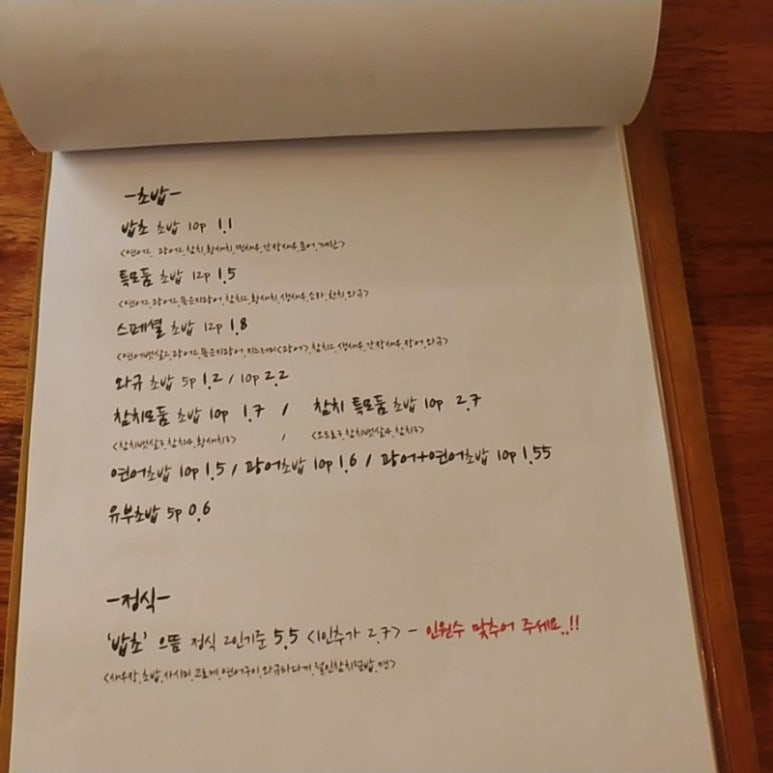 -초밥-
밥초 초밥 10p 1.1
<연어2, 광어2, 참치, 황새치, 찐새우, 간장새우, 문어, 계란>
특모듬 초밥 12p 1.5
<연어2, 광어2, 묵은지광어, 참치2, 황새치, 생새우, 소라, 한치, 와규>
스페셜 초밥 12p 1.8
<연어뱃살2, 광어2, 묵은지광어, 지느러미<광어>, 참치2, 생새우, 간장새우, 장어, 와규>
와규 초밥 5p 1.2 / 10p 2.2
참치모듬 초밥 10p 1.7 / 참치 특모듬 초밥 10p 2.7
<참치뱃살3, 참치4, 황새치3> / <오도로3, 참치뱃살4, 참치3>
연어초밥 10p 1.5 / 광어초밥 10p 1.6 / 광어+연어초밥 10p 1.55
유부초밥 5p 0.6
-정식-
'밥초' 으뜸 정식 2인기준 5.5 <1인추가 2.7> - 인원수 맞추어 주세요..!!
<새우장, 초밥, 사시미, 고로케, 연어구이, 와규타다끼, 절인참치덮밥, 면>